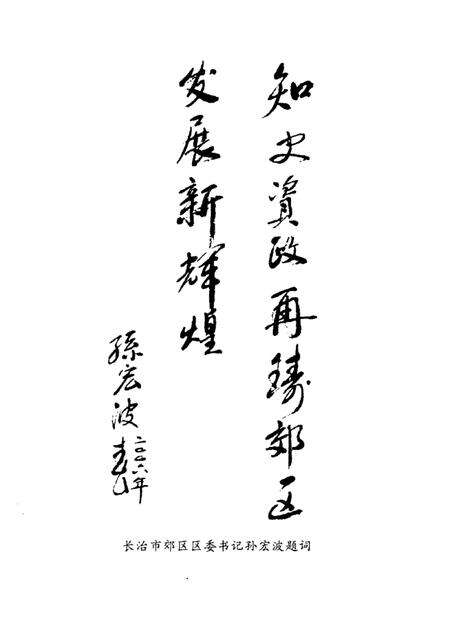 知史資政再鑄郊区
发展新辉煌
孫宏波
二〇〇六年
长治市郊区区委书记孙宏波题词